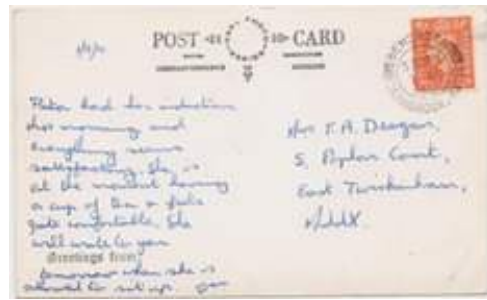 POST CARD
had her
this morning and
everything seems
satisfactory. She is
at the moment having
a cup of tea & feels
quite comfortable. She
will write to you
Greetings from
tomorrow when she is
allowed to sit up.
T.A.
5, Court,
East Twickenham,
Middx.